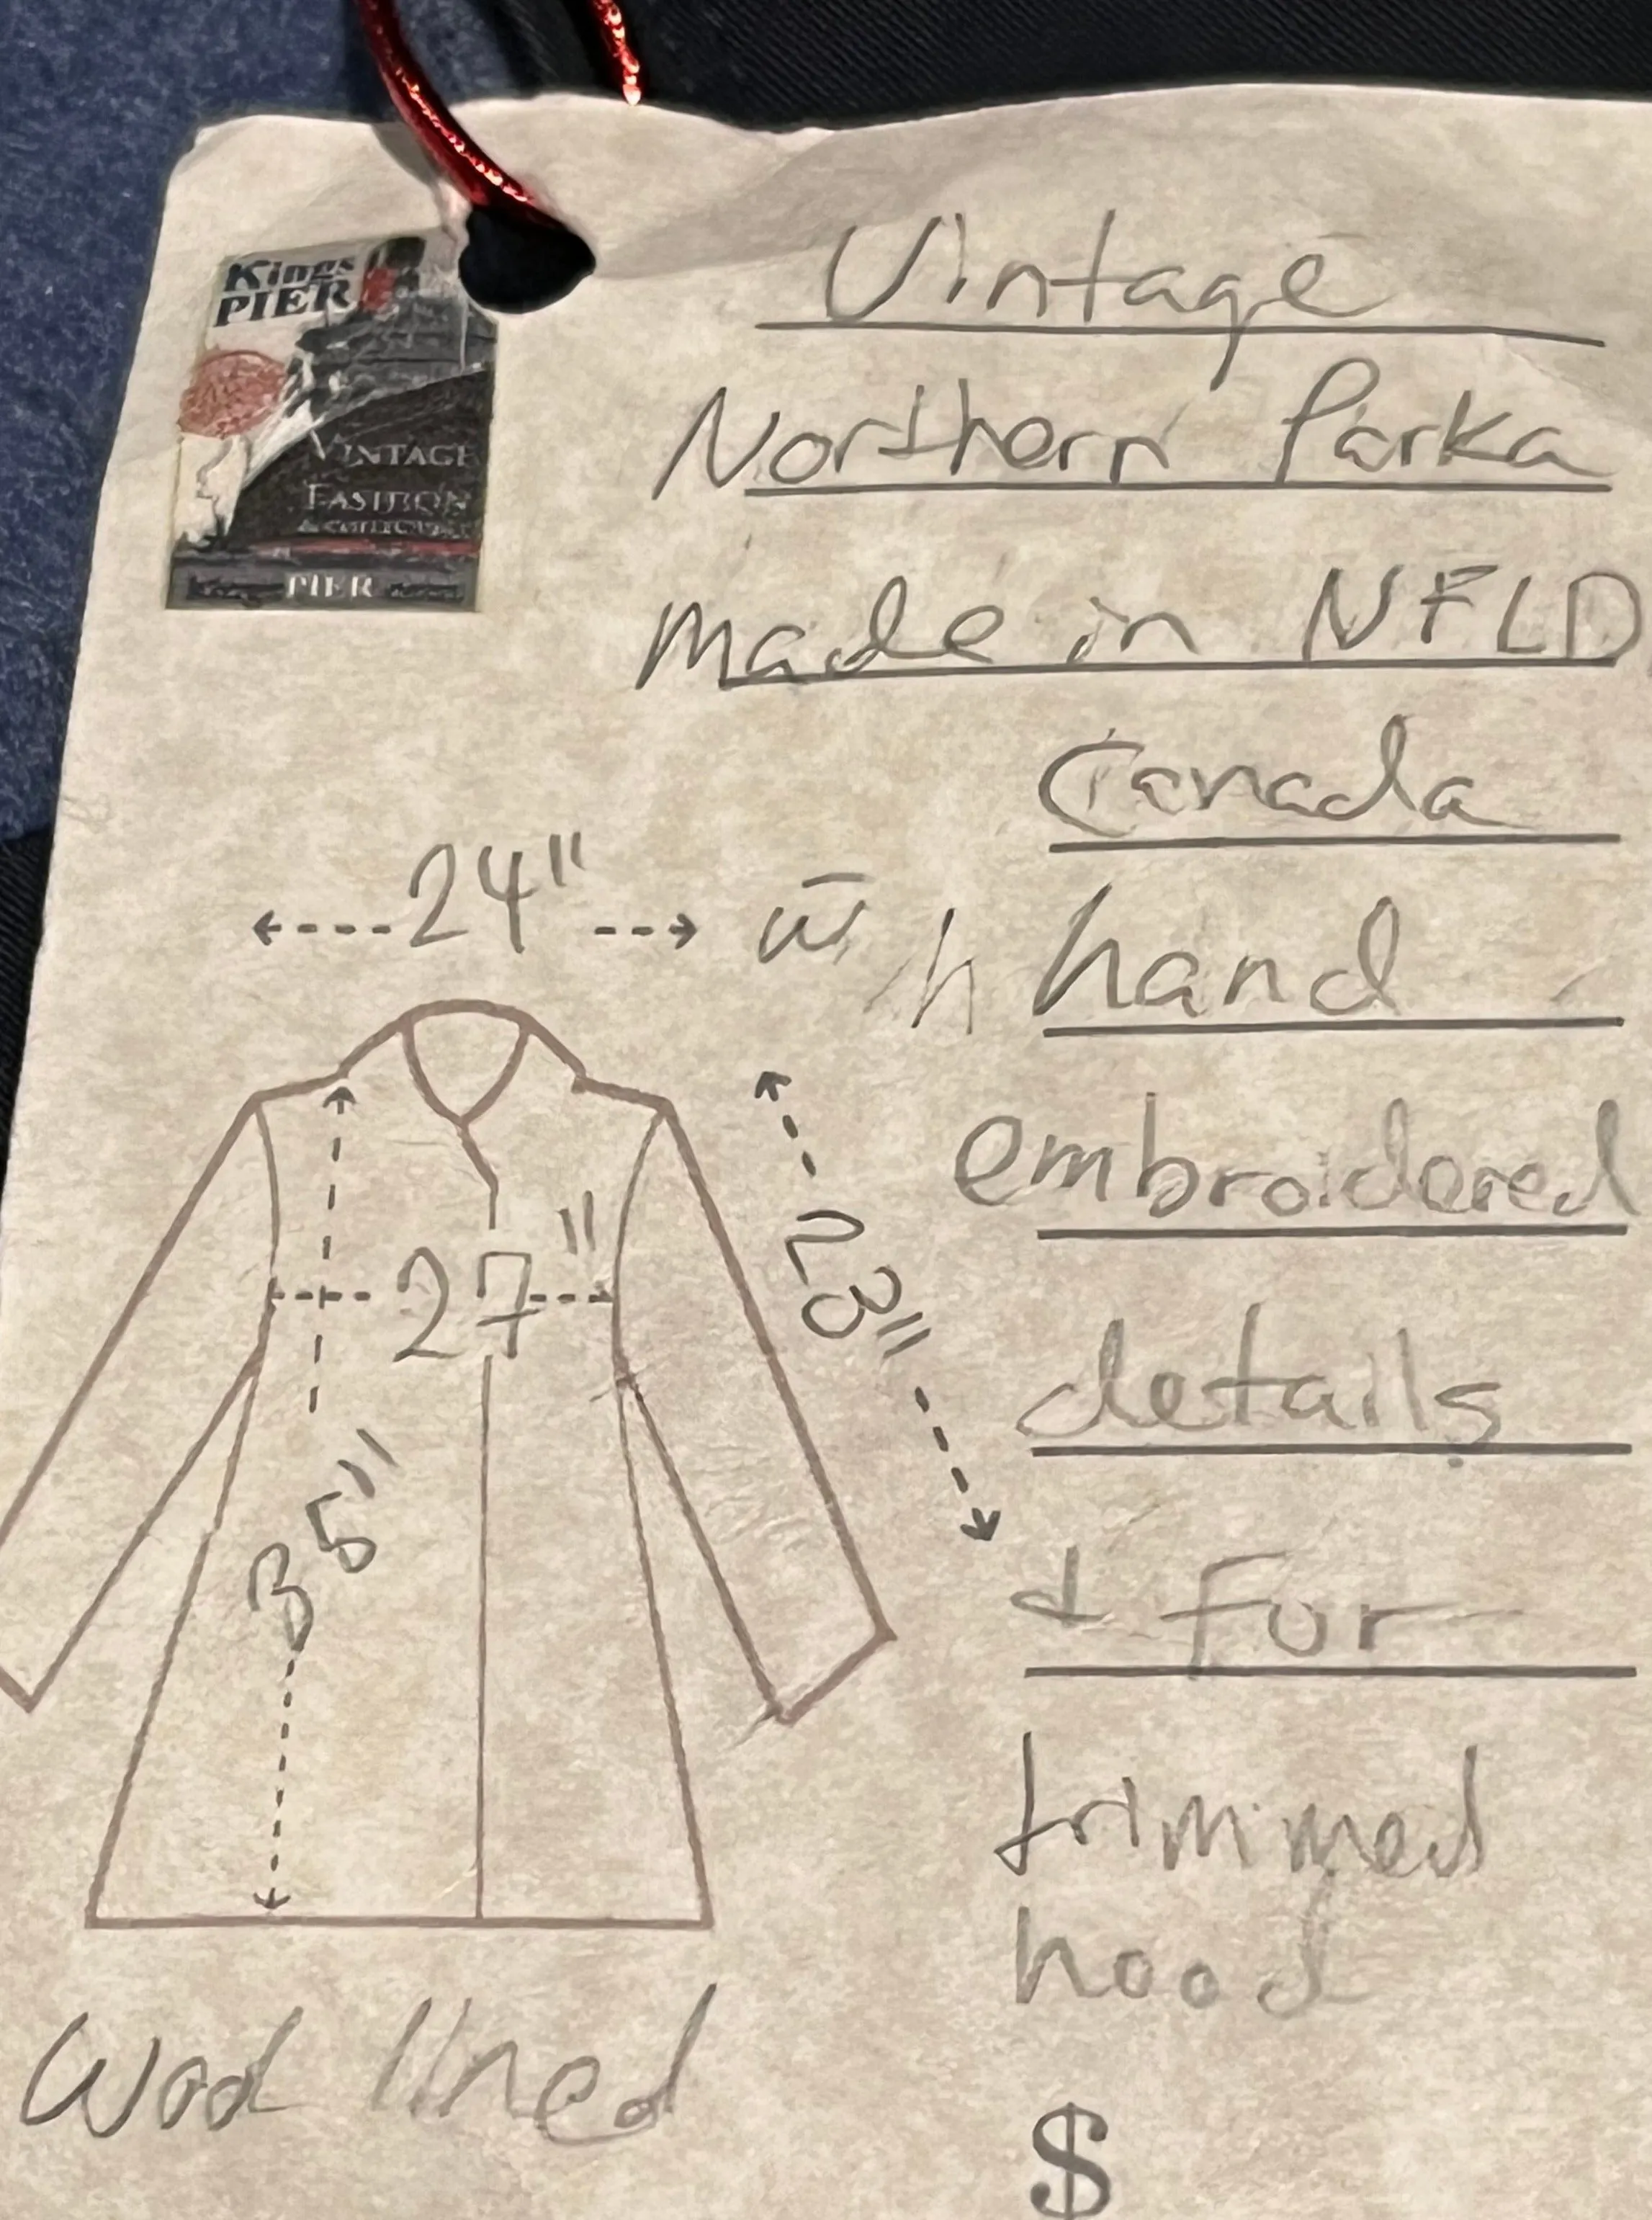 Kings
PIER
VINTAGE
FASHION
PIER
Vintage
Northern Parka
made in NFLD
Canada
24"
w̄ hand
embroidered
27"
23"
details
35"
+ Fur
trimmed
hood
Wool lined
$